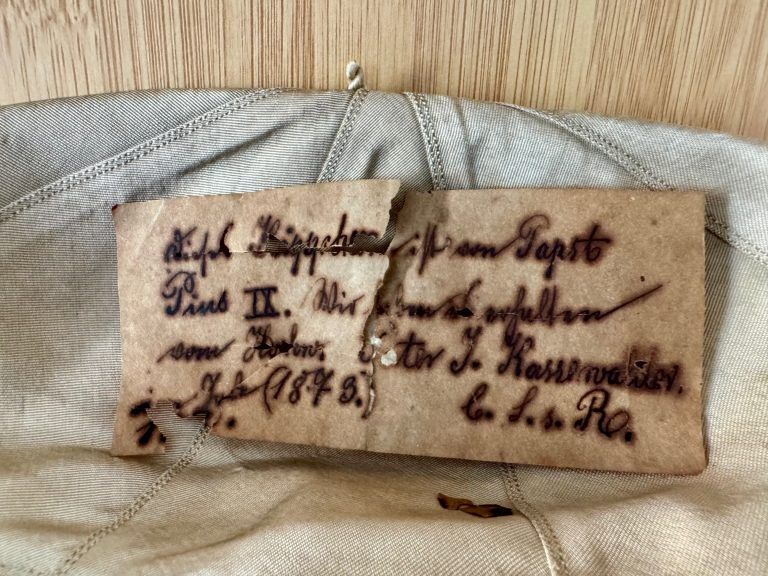 Dieses Käppchen ist von Papst
Pius IX. Wir haben es erhalten
vom Hochw. Pater J. Kassewalder.
(1873. C. S. s. R.